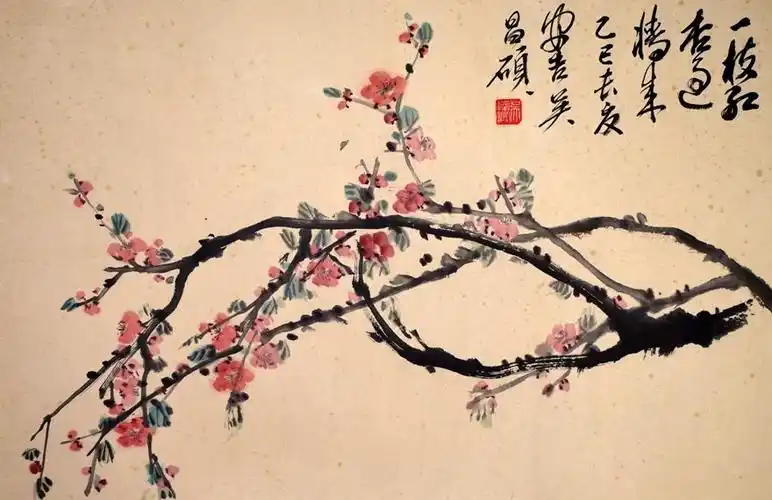 一枝红
杏过
墙来
乙巳春夜
安吉吴
昌硕